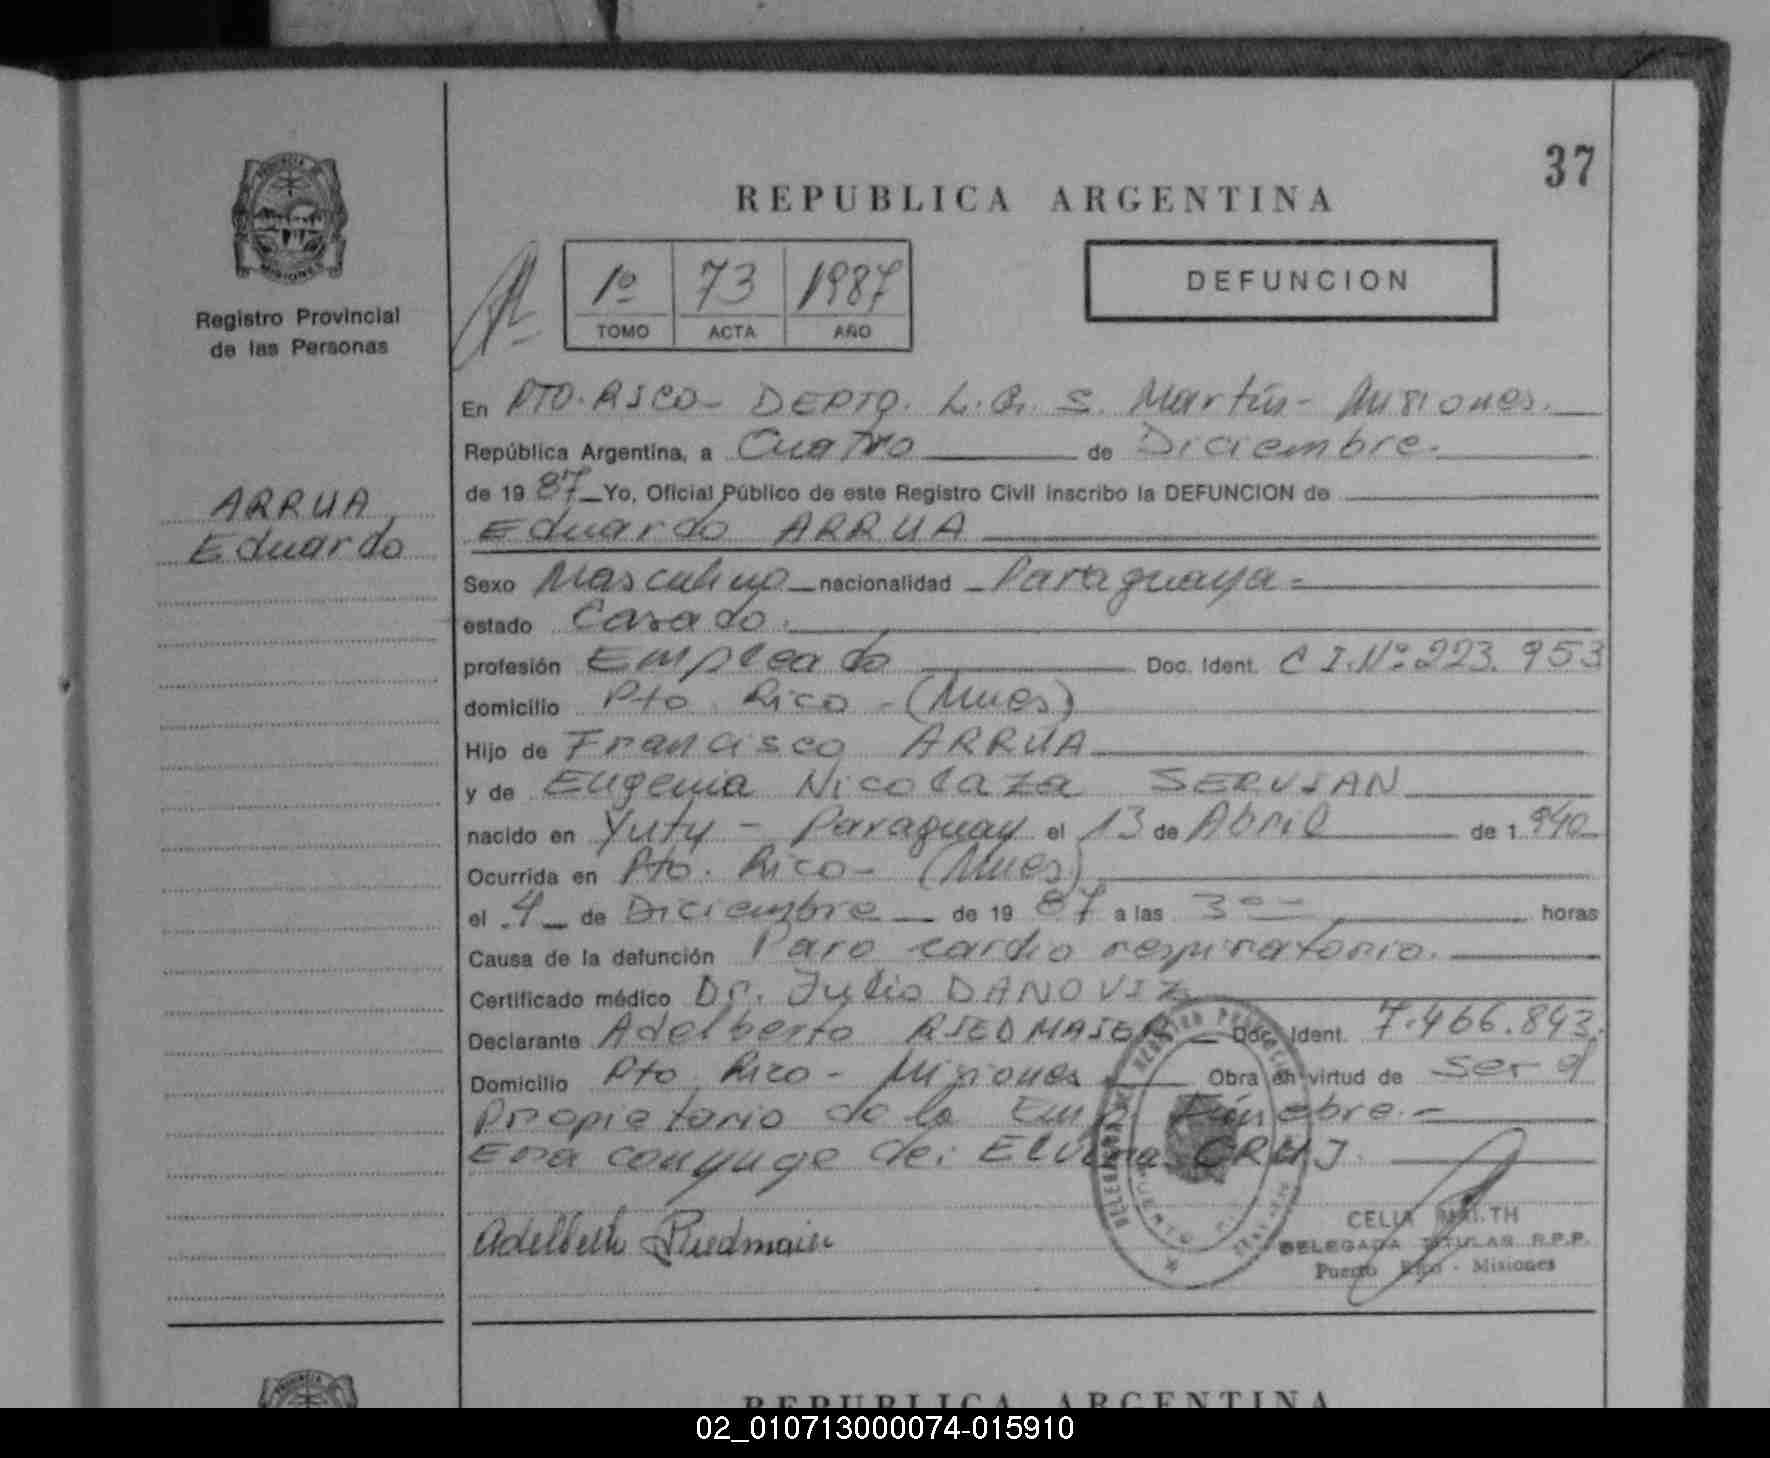 37
REPUBLICA ARGENTINA
PROVINCIA
MISIONES
Registro Provincial
de las Personas
1º 73 1987
TOMO ACTA AÑO
DEFUNCION
En PTO. RICO - DEPTO. L. G. S. Martín - Misiones.
República Argentina, a Cuatro de Diciembre.
de 1987 Yo, Oficial Público de este Registro Civil inscribo la DEFUNCION de
ARRUA
Eduardo
Eduardo ARRUA
Sexo Masculino nacionalidad Paraguaya
estado Casado.
profesión Empleado Doc. Ident. C I. Nº 223.953
domicilio Pto. Rico - (Mnes)
Hijo de Francisco ARRUA
y de Eugenia Nicolaza SERVIAN
nacido en Yuty - Paraguay el 13 de Abril de 1.940
Ocurrida en Pto. Rico - (Mnes)
el 4 de Diciembre de 1987 a las 3 horas
Causa de la defunción Paro cardio respiratorio.
Certificado médico Dr. Julio DANOVIZ
Declarante Adelberto RIEDMAIER Doc. Ident. 7.466.843.
Domicilio Pto. Rico - Misiones Obra en virtud de ser el
Propietario de la Emp. Fúnebre. -
Era conyuge de: Elvira
Adelberto Riedmaier
CELIA
DELEGADA TITULAR R.P.P.
Puerto Rico - Misiones
REPUBLICA ARGENTINA
02_010713000074-015910